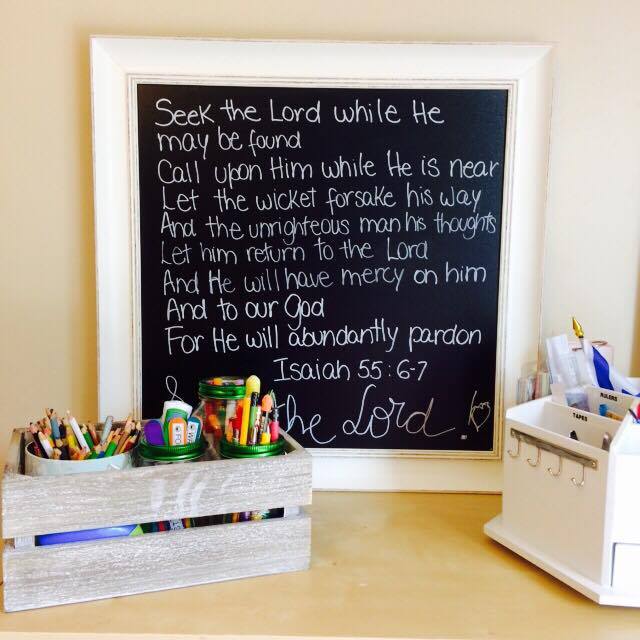 Seek the Lord while He
may be found
Call upon Him while He is near
Let the wicket forsake his way
And the unrighteous man his thoughts
Let him return to the Lord
And He will have mercy on him
And to our God
For He will abundantly pardon
Isaiah 55:6-7
the Lord
RULERS
TAPES